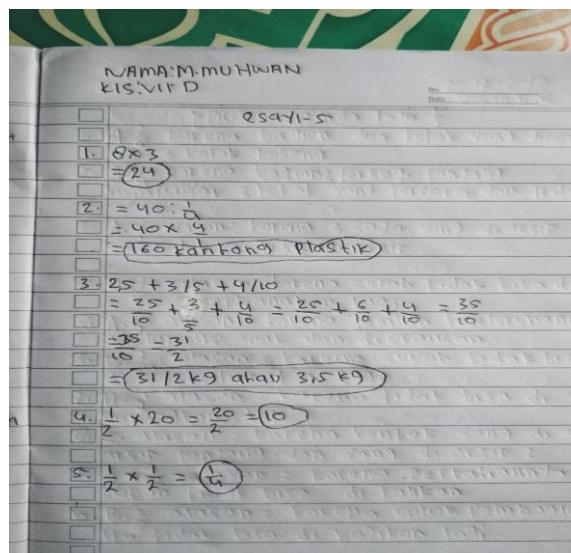 NAMA:M.MUHWAN
KlS:VII D
No.
Date
esay1-5
1. 8x3
= 24
2. = 40 : 1/4
= 40 x 4/1
= 160 kantong Plastik
3. 2,5 + 3/5 + 4/10
= 25/10 + 3/5 + 4/10 = 25/10 + 6/10 + 4/10 = 35/10
= 35/10 = 31/2
= 31/2 kg atau 3,5 kg
4. 1/2 x 20 = 20/2 = 10
5. 1/2 x 1/2 = 1/4